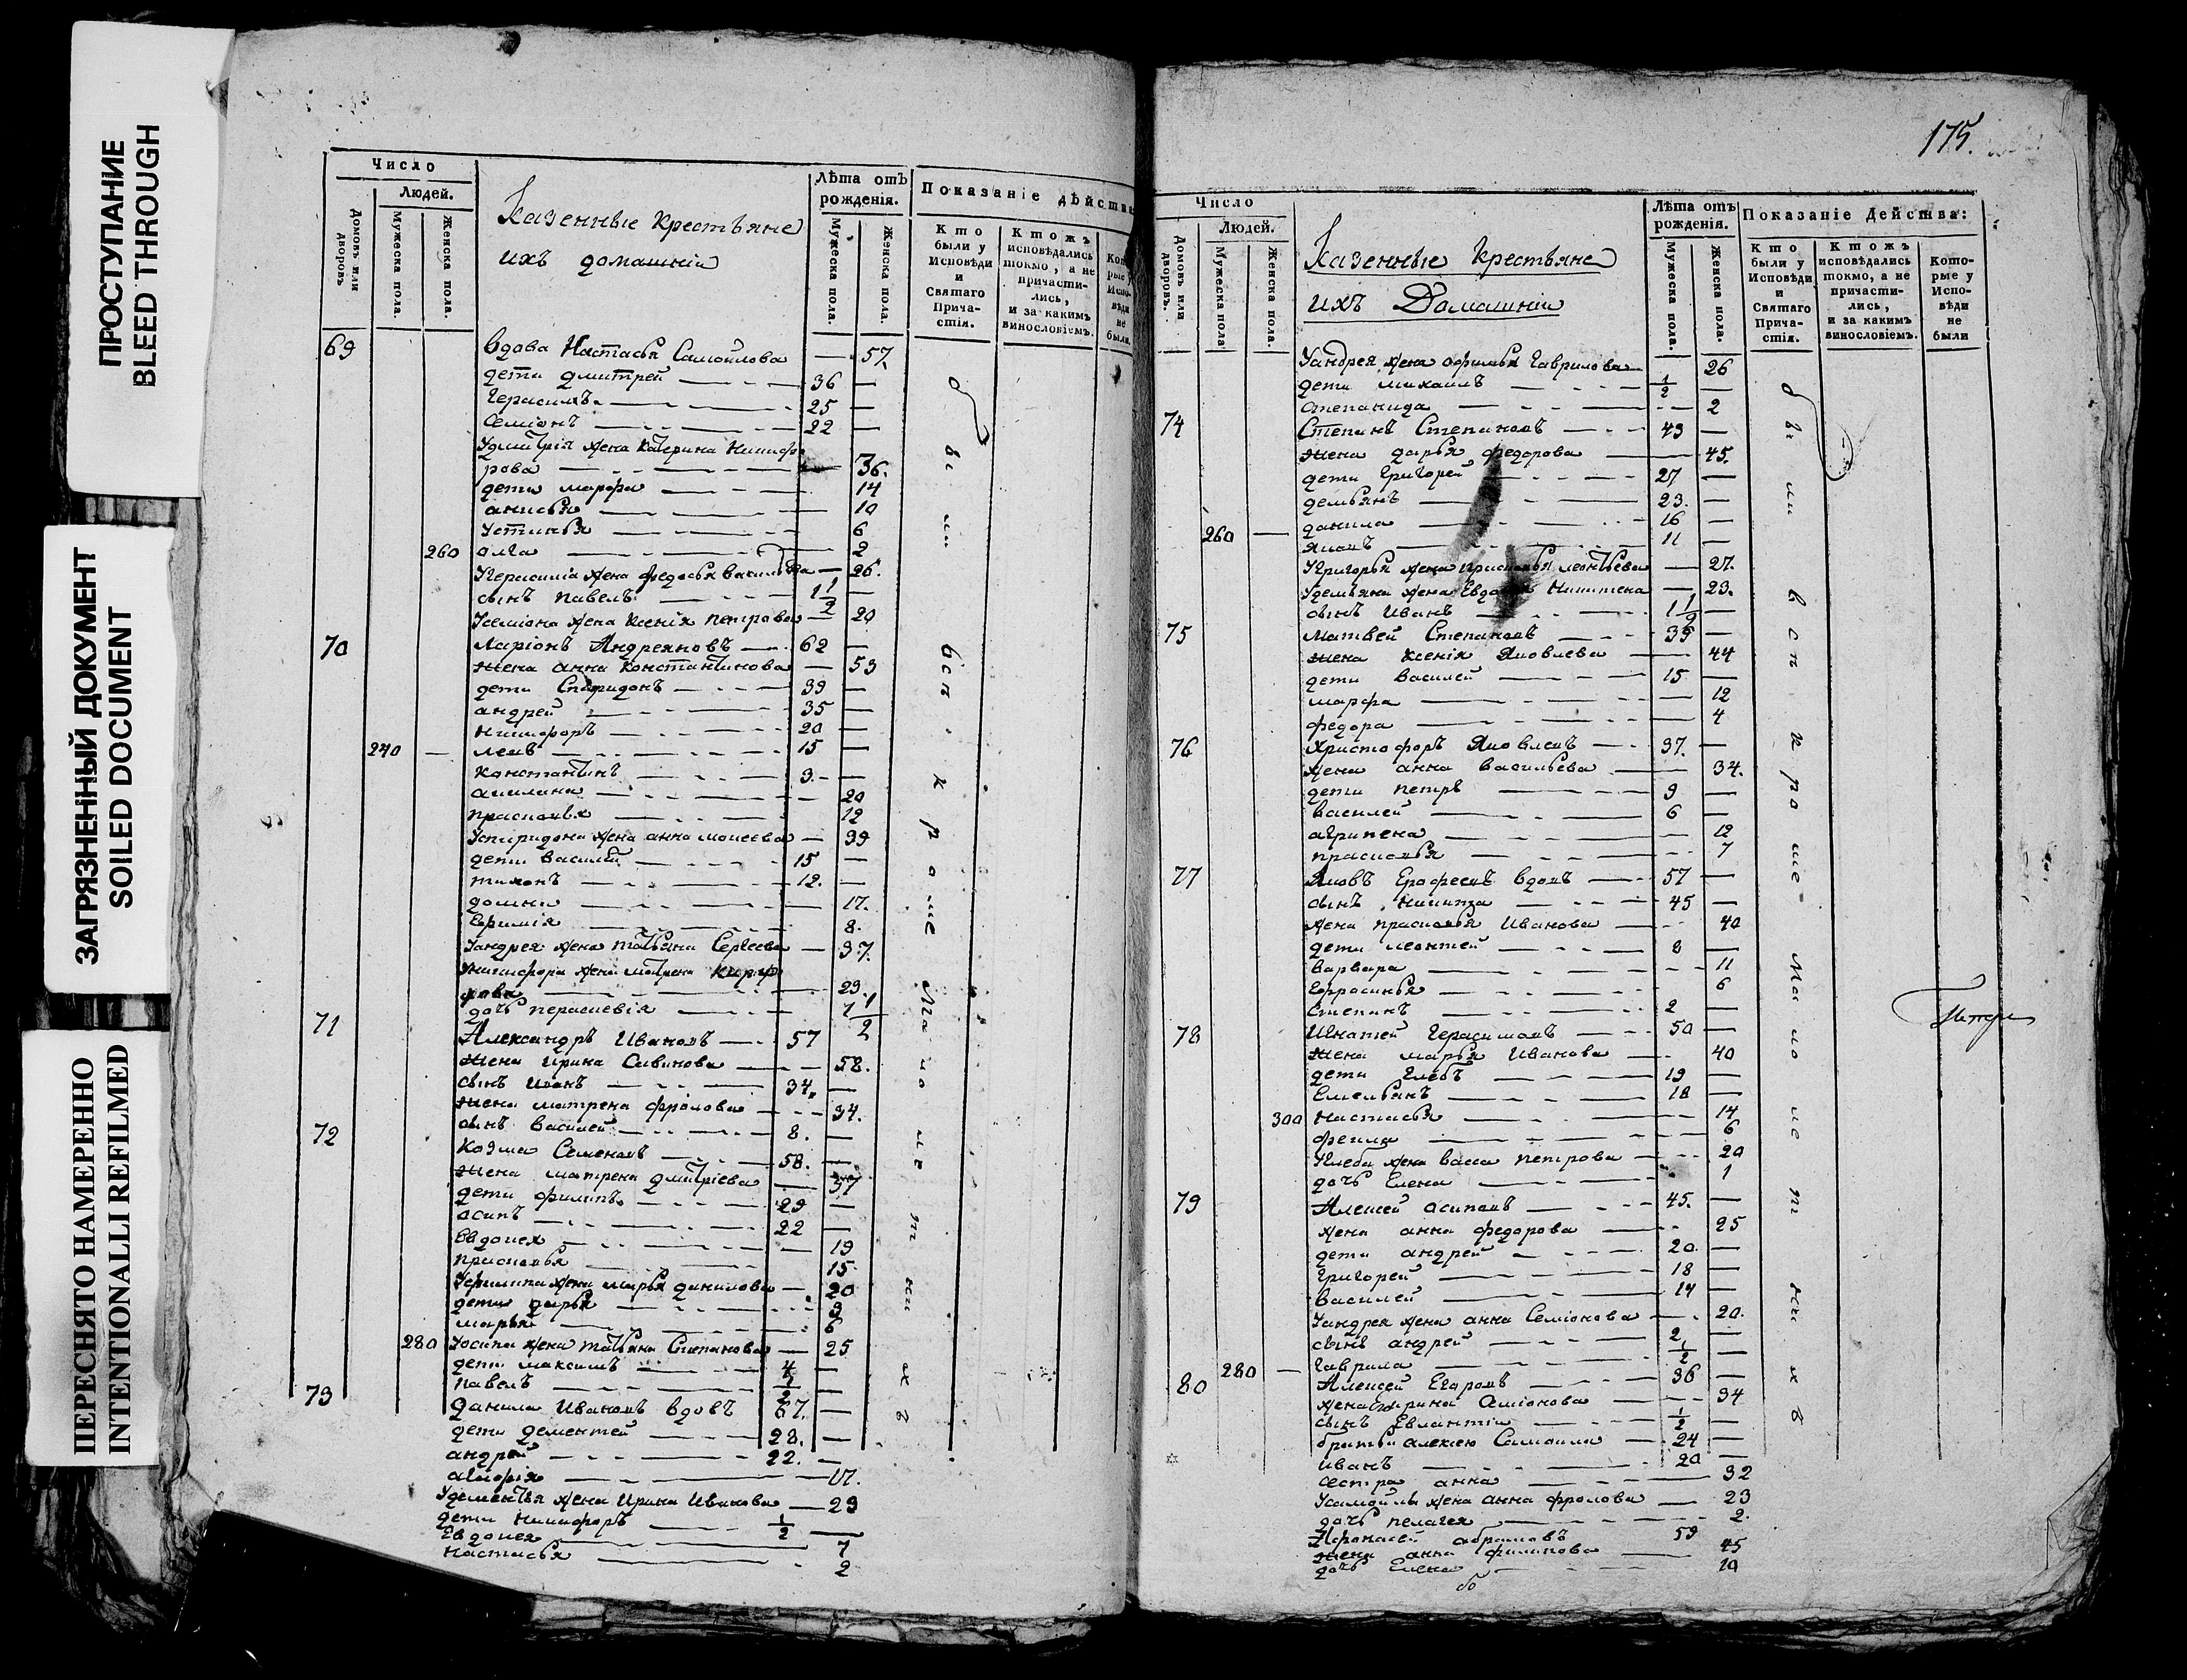 ПРОСТУПАНИЕ
BLEED THROUGH
ЗАГРЯЗНЕННЫЙ ДОКУМЕНТ
SOILED DOCUMENT
ПЕРЕСНЯТО НАМЕРЕННО
INTENTIONALLI REFILMED
Число
Людей.
Домовъ или дворовъ
Мужеска пола.
Женска пола.
Казенные Крестьяне
ихъ домашніи
Лѣта отъ рождения.
Мужеска пола.
Женска пола.
Показаніе дѣйства
Кто были у Исповѣди и Святаго Причастія.
Ктожъ исповѣдались токмо, а не причастились, и за какимъ винословіемъ.
Которые у Исповѣди не были.
69 Вдова Настасья Самойлова — 57
дети дмитрей 36 —
Герасимъ 25 —
Семіонъ 22 —
Удмитрія жена Катерина Никифо
рова — 36.
дети марфа 14
анисья 10
Устинья 6
260 олга 2
Угерасима жена федосья Василева — 26.
сынъ павелъ 1 1/2 —
Усеміона жена Ксенія петрова — 20
70 Ларіонъ Андреяновъ 62 —
жена анна Константинова — 53
дети Спиридонъ 39 —
андрей 35 —
Никифоръ 20 —
240 — левъ 15 —
Константинъ 9 —
акилина 20
прасковья 12
Успиридона жена анна моисеева — 39
дети василей 15 —
тихонъ 12. —
домна 17.
Ефимія 8.
Уандрея жена татьяна Сергеева — 37.
Уникифора жена матрена
29.
дочь 1 1/2
71 Александръ Ивановъ 57
жена ирина Савинова 58.
сынъ Иванъ 34. —
жена матрена фролова 34.
сынъ василей 8. —
72 Козма Семеновъ 58. —
жена матрена дмитріева 57
дети филипъ 29 —
осипъ 22 —
Евдокея 19
прасковья 15
Уфилипа жена марья данилова 20
дети дарья 9
марья 6
280 Уосипа жена татьяна Степанова — 25
дети максимъ 4 —
павелъ 1/2 —
73 Данила Ивановъ вдовъ 57. —
дети дементей 28. —
андрей 22. —
агафія 17.
Удементья жена Ирина Иванова — 29
дети Никифоръ 1/2 —
Евдокея 7
настасья 2
175.
Число
Людей.
Домовъ или дворовъ.
Мужеска пола
Женска пола.
Казенные Крестьяне
ихъ Домашніи
Лѣта отъ рождения.
Мужеска пола.
Женска пола.
Показаніе Действа:
Кто были у Исповѣди и Святаго Причастія.
Ктожъ исповѣдались токмо, а не причастились, и за какимъ винословіемъ.
Которые у Исповѣди не были
Уандрея жена афимья Гаврилова 26
дети михаилъ 1/2 —
степанида 2
74 Степанъ Степановъ 49 —
жена дарья федорова 45.
дети Григорей 27 —
демьянъ 23. —
данила 16 —
260 — яковъ 11 —
Угригорья жена прасковья леонтьева — 27.
Удемьяна жена Никитена — 23.
сынъ Иванъ 1 1/2 —
75 Матвей Степановъ 39 —
жена Ксенія Яковлева 44
дети василей 15 —
марфа 12
федора 4
76 Христофоръ Яковлевъ 37. —
жена анна васильева 34.
дети петръ 9 —
василей 6 —
агрипена 12
прасковья 7
77 Яковъ Ерофеевъ вдовъ 57 —
сынъ Никита 45 —
жена прасковья Иванова 40
дети леонтей 8 —
варвара 11
Ефросинья 6
Степанъ 2 —
78 Игнатей Герасимовъ 50 —
жена марья Иванова 40
дети Глебъ 19 —
Емельянъ 18 —
300 Настасья 14
фекла 6
Углеба жена васса петрова 20
дочь Елена 1
79 Алексей осиповъ 45. —
жена анна федорова 25
дети андрей 20. —
Григорей 18 —
василей 14 —
Уандрея жена анна Семіонова 20.
сынъ андрей 2 —
280 — Гаврила 1/2 —
80 Алексей Егоровъ 36 —
жена Ирина Семіонова 34
сынъ 1/2 —
братья алексею Самоила 24 —
иванъ 20 —
сестра анна 32
Усамойлы жена анна фролова — 23
дочь пелагея 2.
Афонасей абрамовъ 59
жена анна филипова 45
дочь Елена 10